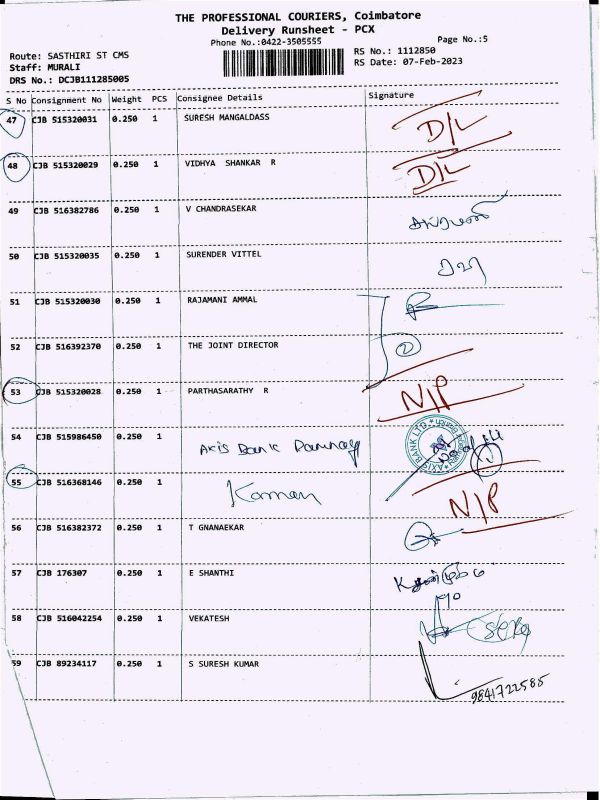 THE PROFESSIONAL COURIERS, Coimbatore
Delivery Runsheet - PCX
Phone No.:0422-3505555
Page No.:5
Route: SASTHIRI ST CMS
Staff: MURALI
DRS No.: DCJB111285005
RS No.: 1112850
RS Date: 07-Feb-2023
S No Consignment No Weight PCS Consignee Details Signature
47 CJB 515320031 0.250 1 SURESH MANGALDASS D/L
48 CJB 515320029 0.250 1 VIDHYA SHANKAR R D/L
49 CJB 516382786 0.250 1 V CHANDRASEKAR
50 CJB 515320035 0.250 1 SURENDER VITTEL
51 CJB 515320030 0.250 1 RAJAMANI AMMAL
52 CJB 516392370 0.250 1 THE JOINT DIRECTOR 2
53 CJB 515320028 0.250 1 PARTHASARATHY R N/P
54 CJB 515986450 0.250 1 Axis Bank AXIS BANK LTD
55 CJB 516368146 0.250 1 N/P
56 CJB 516382372 0.250 1 T GNANAEKAR
57 CJB 176307 0.250 1 E SHANTHI
58 CJB 516042254 0.250 1 VEKATESH
59 CJB 89234117 0.250 1 S SURESH KUMAR
9841722585